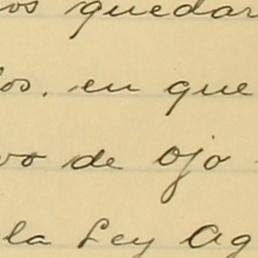 os quedar
os. en que
vo de ojo
la Ley Ag